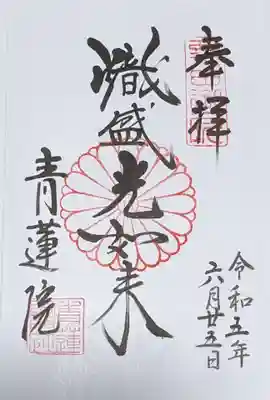 奉拝
熾盛光如来
青蓮院
令和五年
六月廿五日